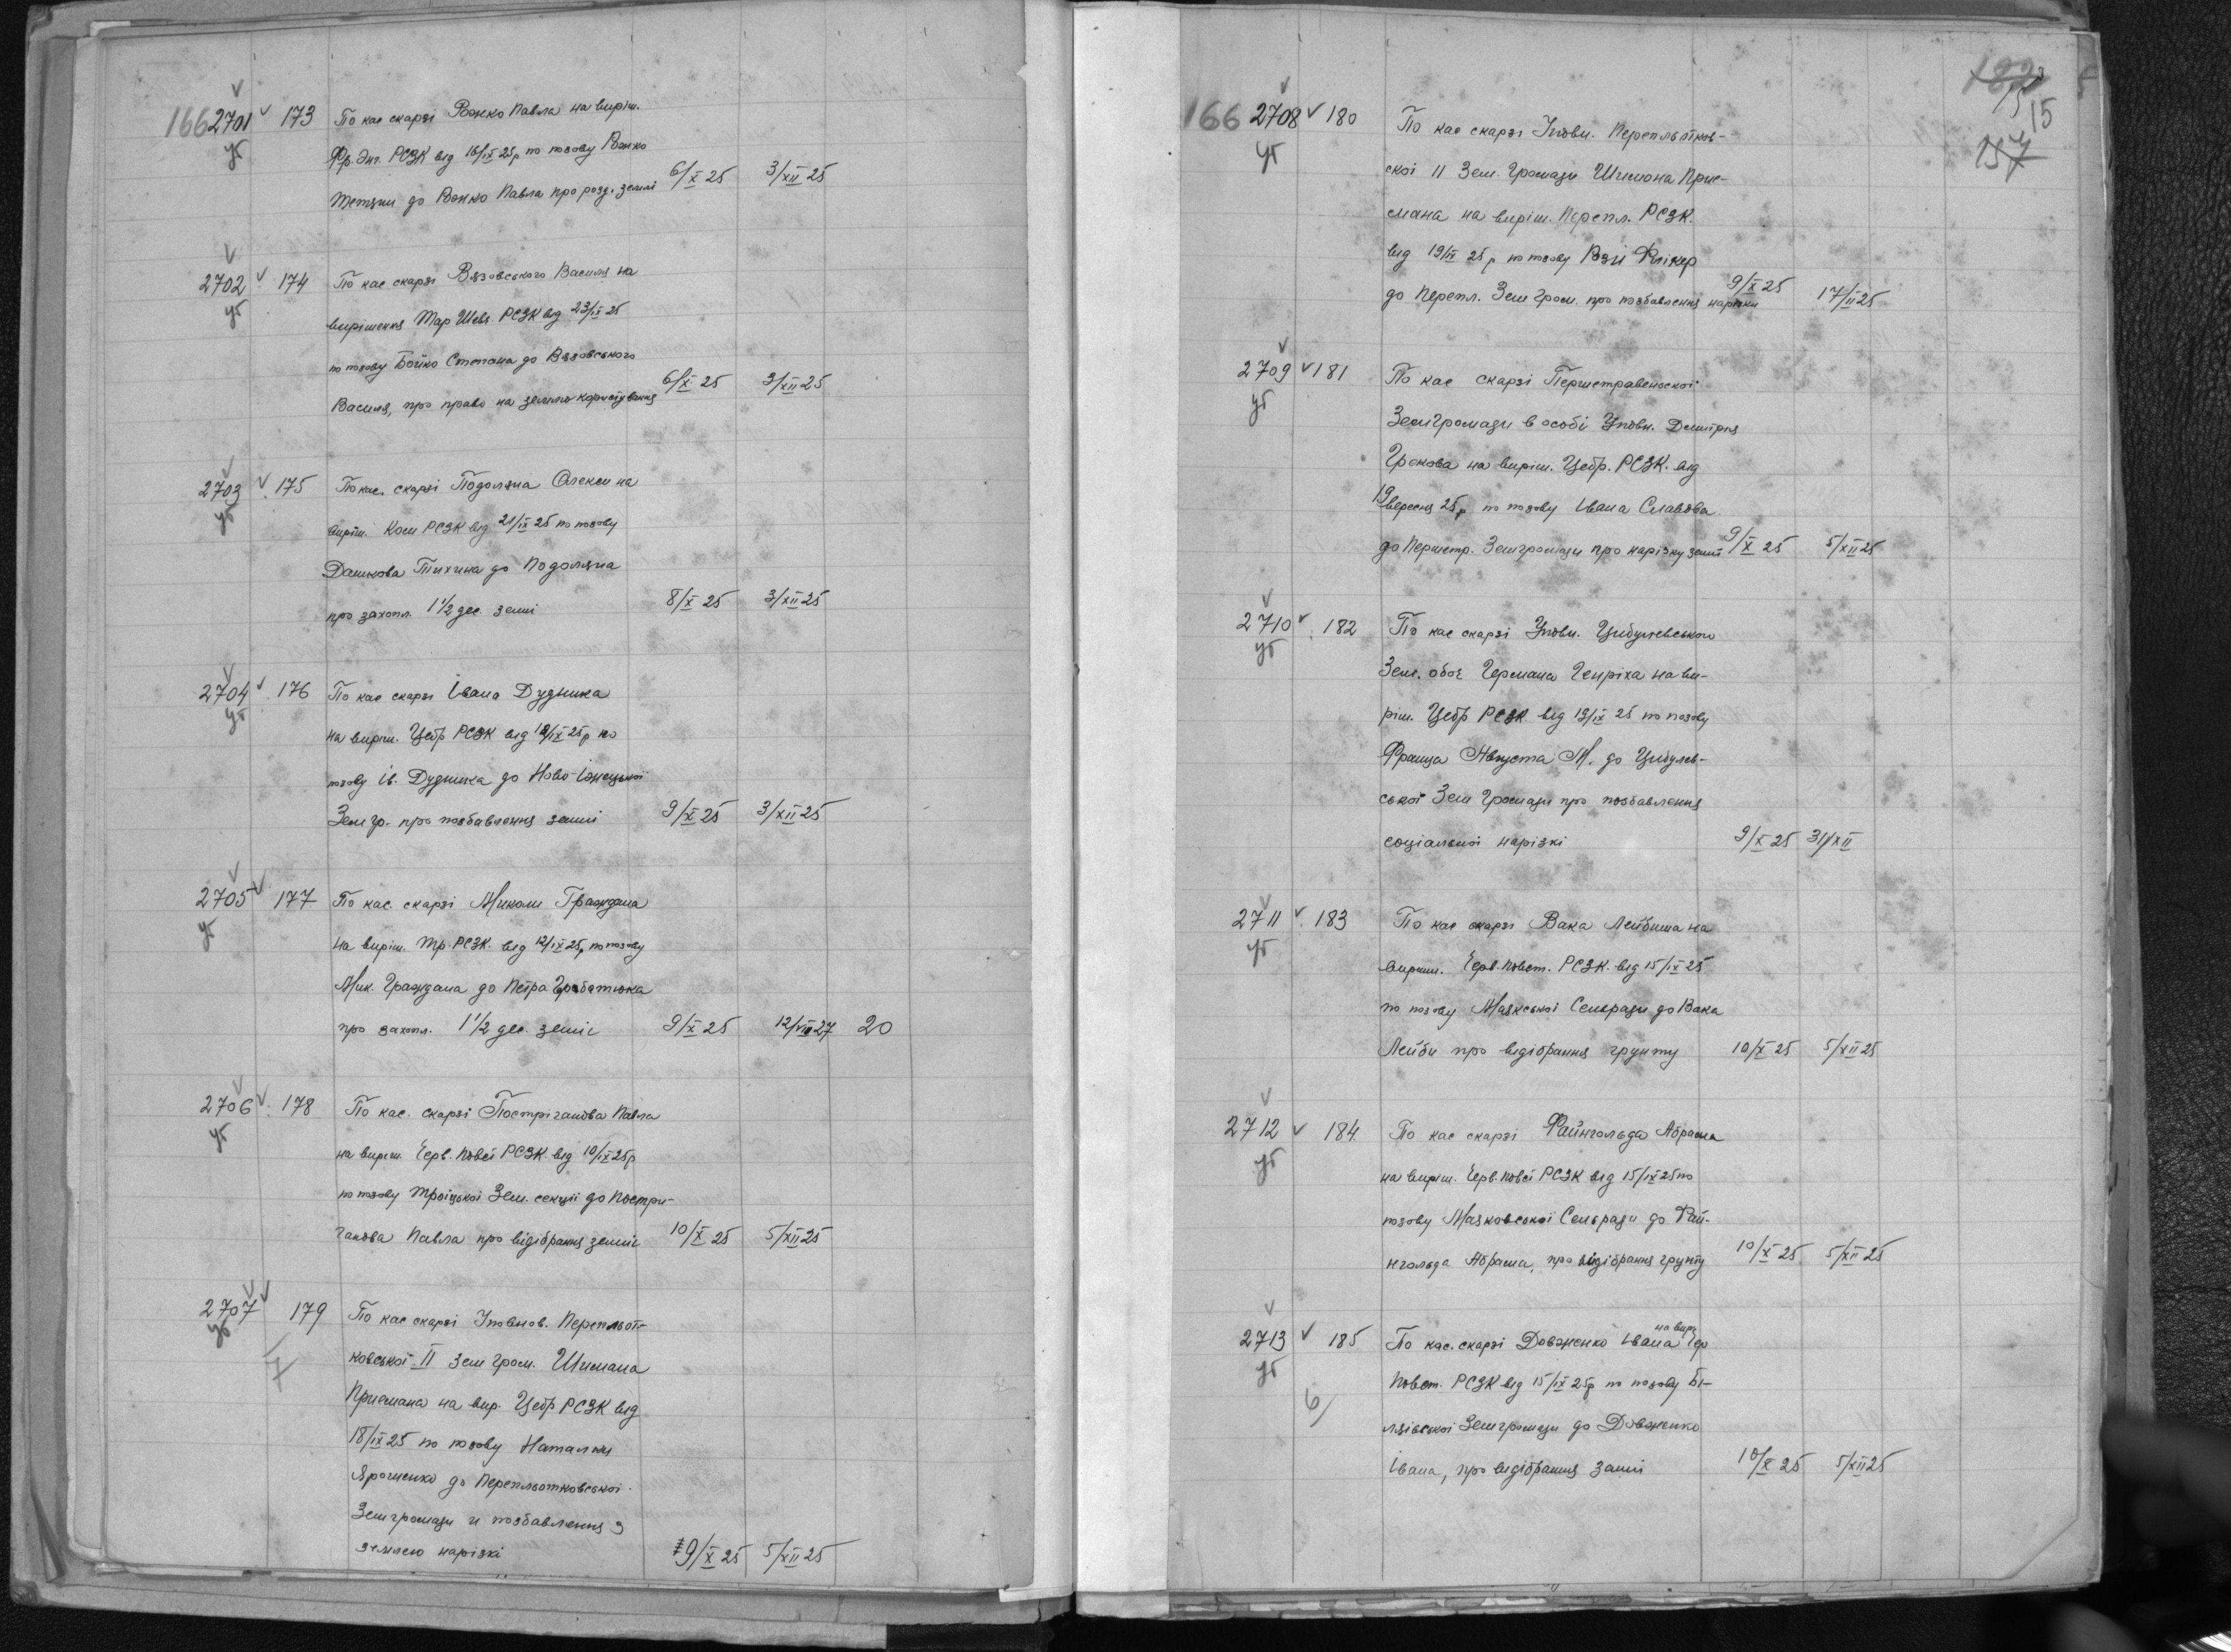 166 2701 173 По кас скарзі Рожко Павла на виріш.
уб Фр. Энг. РСЗК від 16/ІХ 25р по позову Рожко
Тетяни до Рожко Павла про розд. землі 6/Х 25 3/ХІІ 25
2702 174 По кас скарзі Вязовського Василя на
уб вирішення Тар Шевч РСЗК від 23/ІХ 25
по позову Бойко Степана до Вязовського
Василя, про право на землю користування 6/Х 25 3/ХІІ 25
2703 175 По кас. скарзі Подоляна Олекси на
уб виріш. Ком РСЗК від 21/ІХ 25 по позову
Данькова Тихина до Подоляна
про захопл. 1 1/2 дес. землі 8/Х 25 3/ХІІ 25
2704 176 По кас скарзі Івана Дудника
уб на виріш. Цебр РСЗК від 19/ІХ 25р по
позову Ів. Дудника до Ново-
Зем гр. про позбавлення землі 9/Х 25 3/ХІІ 25
2705 177 По кас. скарзі Миколи Граждана
уб на виріш. Тр. РСЗК від 12/ІХ 25р по позову
Мик. Граждана до Петра Горбатюка
про захопл. 1 1/2 дес землі 9/Х 25 12/VІІІ 27 20
2706 178 По кас. скарзі Постріганова Павла
уб на виріш. Черв. Повст РСЗК від 10/ІХ 25р
по позову Троїцької Зем. секції до Постри-
ганова Павла про відібрання землі 10/Х 25 5/ХІІ 25
2707 179 По кас скарзі Уповнов. Перепльот-
уб ковської ІІ зем гром. Шимана
Присмана на вир. Цебр РСЗК від
18/ІХ 25 по позову Наталки
Ярошенко до Перепльотковської
Земгромади и позбавлення з
землею нарізкі 9/Х 25 5/ХІІ 25
182
15
157
166 2708 180 По кас скарзі Уповн. Перепльотков-
уб ської ІІ Зем. Громади Шимона Прис-
мана на виріш. Перепл. РСЗК.
від 19/ІХ 25р по позову Рзи Флікер
до Перепл. Зем Гром. про позбавлення нарізки 9/Х 25 17/ІІ 25
2709 181 По кас скарзі Першетравенської
уб Земгромади в особі Уповн. Дмитрия
Грекова на виріш. Цебр. РСЗК. від
19 вересня 25р по позову Івана Славова
до Першетр. Земгромади про нарізку землі 9/Х 25 5/ХІІ 25
2710 182 По кас скарзі Уповн. Цибулевського
уб Зем. обоє Германа Генріха на ви-
ріш. Цебр РСЗК від 19/ІХ 25 по позову
Франца Августа М. до Цибулев-
ської Зем Громади про позбавлення
соціальної нарізкі 9/Х 25 31/ХІІ
2711 183 По кас скарзі Вака Лейбиша на
уб виріш. Черв. Повст. РСЗК. від 15/ІХ 25
по позову Маякської Сельради до Вака
Лейби про відібрання грунту 10/Х 25 5/ХІІ 25
2712 184 По кас скарзі Файнгольда Абрама
уб на виріш. Черв. Повст РСЗК від 15/ІХ 25 по
позову Маяковської Сельради до Фай-
нгольда Абрама, про відібрання грунту 10/Х 25 5/ХІІ 25
на вир.
2713 185 По кас. скарзі Довженко Івана Чер
уб Повст. РСЗК від 15/ІХ 25р по позову Бі-
6/ ляівської Земгромади до Довженко
Івана, про відібрання землі 10/Х 25 5/ХІІ 25